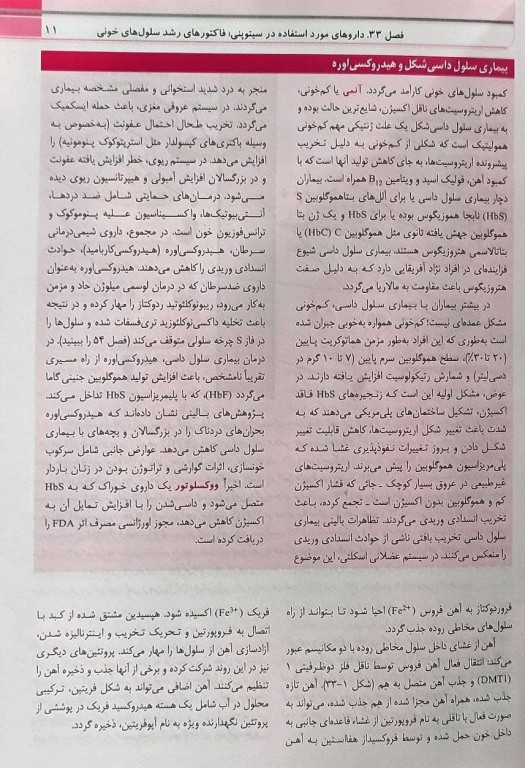 فصل ۳۳. داروهای مورد استفاده در سیتوپنی؛ فاکتورهای رشد سلول‌های خونی ۱۱
بیماری سلول داسی‌شکل و هیدروکسی‌اوره
کمبود سلول‌های خونی کارآمد می‌گردد. آنمی یا کم‌خونی،
کاهش اریتروسیت‌های ناقل اکسیژن، شایع‌ترین حالت بوده و
به بیماری سلول داسی‌شکل یک علت ژنتیکی مهم کم‌خونی
همولیتیک است که شکلی از کم‌خونی به دلیل تخریب
پیشرونده اریتروسیت‌ها، به جای کاهش تولید آنها است که با
کمبود آهن، فولیک اسید و ویتامین B12 همراه است. بیماران
دچار بیماری سلول داسی یا برای آلل‌های بتاهموگلوبین S
(HbS) نابجا هموزیگوس بوده یا برای HbS و یک ژن بتا
هموگلوبین جهش یافته ثانوی مثل هموگلوبین C (HbC) یا
بتاتالاسمی هتروزیگوس هستند. بیماری سلول داسی شیوع
فزاینده‌ای در افراد نژاد آفریقایی دارد که به دلیل صفت
هتروزیگوس باعث مقاومت به مالاریا می‌گردد.
در بیشتر بیماران با بیماری سلول داسی، کم‌خونی
مشکل عمده‌ای نیست؛ کم‌خونی همواره به‌خوبی جبران شده
است به‌طوری که این افراد به‌طور مزمن هماتوکریت پایین
(۲۰ تا ۳۰٪)، سطح هموگلوبین سرم پایین (۷ تا ۱۰ گرم در
دسی‌لیتر) و شمارش رتیکولوسیت افزایش یافته دارند. در
عوض، مشکل اولیه این است که زنجیره‌های HbS فاقد
اکسیژن، تشکیل ساختمان‌های پلی‌مریکی می‌دهند که به
شدت باعث تغییر شکل اریتروسیت‌ها، کاهش قابلیت تغییر
شکل دادن و بروز تغییرات نفوذپذیری غشا شده که
پلی‌مریزاسیون هموگلوبین را پیش می‌برند. اریتروسیت‌های
غیرطبیعی در عروق بسیار کوچک ـ جائی که فشار اکسیژن
کم و هموگلوبین بدون اکسیژن است ـ تجمع کرده، باعث
تخریب انسدادی وریدی می‌گردند. تظاهرات بالینی بیماری
سلول داسی تخریب بافتی ناشی از حوادث انسدادی وریدی
را منعکس می‌کنند. در سیستم عضلانی اسکلتی، این موضوع
منجر به درد شدید استخوانی و مفصلی مشخصه بیماری
می‌گردند. در سیستم عروقی مغزی، باعث حمله ایسکمیک
می‌گردد. تخریب طحال احتمال عفونت (به‌خصوص به
وسیله باکتری‌های کپسولدار مثل استرپتوکوک پنومونیه) را
افزایش می‌دهد. در سیستم ریوی، خطر افزایش یافته عفونت
و در بزرگسالان افزایش آمبولی و هیپرتانسیون ریوی دیده
می‌شود. درمان‌های حمایتی شامل ضد دردها،
آنتی‌بیوتیک‌ها، واکسیناسیون علیه پنوموکوک و
ترانس‌فوزیون خون است. در مجموع، داروی شیمی‌درمانی
سرطان، هیدروکسی‌اوره (هیدروکسی‌کاربامید)، حوادث
انسدادی وریدی را کاهش می‌دهند. هیدروکسی‌اوره به‌عنوان
داروی ضدسرطان که در درمان لوسمی میلوژن حاد و مزمن
به‌کار می‌رود، ریبونوکلئوتید ردوکتاز را مهار کرده و در نتیجه
باعث تخلیه داکسی‌نوکلئوزید تری‌فسفات شده و سلول‌ها را
در فاز S چرخه سلولی متوقف می‌کند (فصل ۵۴ را ببینید). در
درمان بیماری سلول داسی، هیدروکسی‌اوره از راه مسیری
تقریباً نامشخص، باعث افزایش تولید هموگلوبین جنینی گاما
می‌گردد (HbF)، که با پلیمریزاسیون HbS تداخل می‌کند.
پژوهش‌های بالینی نشان داده‌اند که هیدروکسی‌اوره
بحران‌های دردناک را در بزرگسالان و بچه‌های با بیماری
سلول داسی کاهش می‌دهد. عوارض جانبی شامل سرکوب
خونسازی، اثرات گوارشی و تراتوژن بودن در زنان باردار
است. اخیراً ووکسلوتور یک داروی خوراک که به HbS
متصل می‌شود و داسی‌شدن را با افزایش تمایل آن به
اکسیژن کاهش می‌دهد، مجوز اورژانسی مصرف اثر FDA را
دریافت کرده است.
فروردوکتاژ به آهن فروس (Fe2+) احیا شود تا بتواند از راه
سلول‌های مخاطی روده جذب گردد.
آهن از غشای داخل سلول مخاطی روده با دو مکانیسم عبور
می‌کند: انتقال فعال آهن فروس توسط ناقل فلز دوظرفیتی ۱
(DMT1) و جذب آهن متصل به هِم (شکل ۱–۳۳). آهن تازه
جذب شده، همراه آهن مجزا شده از هم جذب شده، می‌تواند به
صورت فعال با ناقلی به نام فروپورتین از غشاء قاعده‌ای جانبی به
داخل خون حمل شده و توسط فروکسیداز هفااستین به آهن
فریک (Fe3+) اکسیده شود. هپسیدین مشتق شده از کبد با
اتصال به فروپورتین و تحریک تخریب و اینترنالیزه شدن،
آزادسازی آهن از سلول‌ها را مهار می‌کند. پروتئین‌های دیگری
نیز در این روند شرکت کرده و برخی از آنها جذب و ذخیره آهن را
تنظیم می‌کنند. آهن اضافی می‌تواند به شکل فریتین، ترکیبی
محلول در آب شامل یک هسته هیدروکسید فریک در پوششی از
پروتئین نگهدارنده ویژه به نام آپوفریتین، ذخیره گردد.